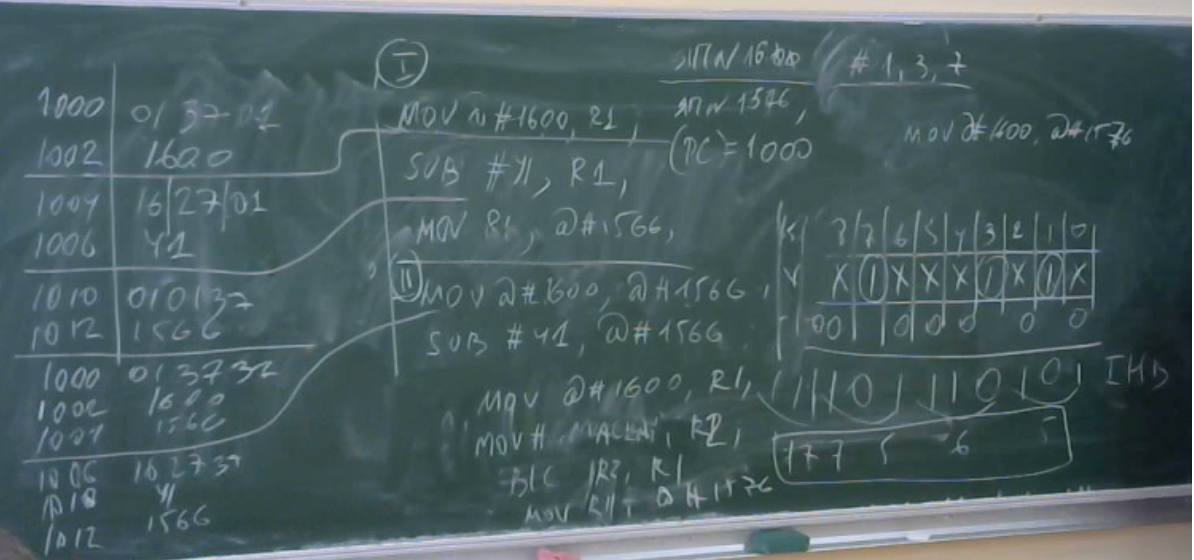 1000 013701
1002 1600
1004 16|27|01
1006 41
1010 010137
1012 1566
1000 013737
1002 1600
1004 1566
1006 162737
1010 41
1012 1566
I
MOV @#1600, R1,
SUB #41, R1,
MOV R1, @#1566,
II
MOV @#1600, @#1566,
SUB #41, @#1566
MOV @#1600, R1,
R2,
BIC R2, R1
MOV R1, @#1576
ЯПN 1600
ЯПN 1576,
(PC)=1000
# 1, 3, 7
MOV @#1600, @#1576
8 7 6 5 4 3 2 1 0
X 1 X X X 1 X 1 X
00 0 0 0 0 0
177 5 6 5